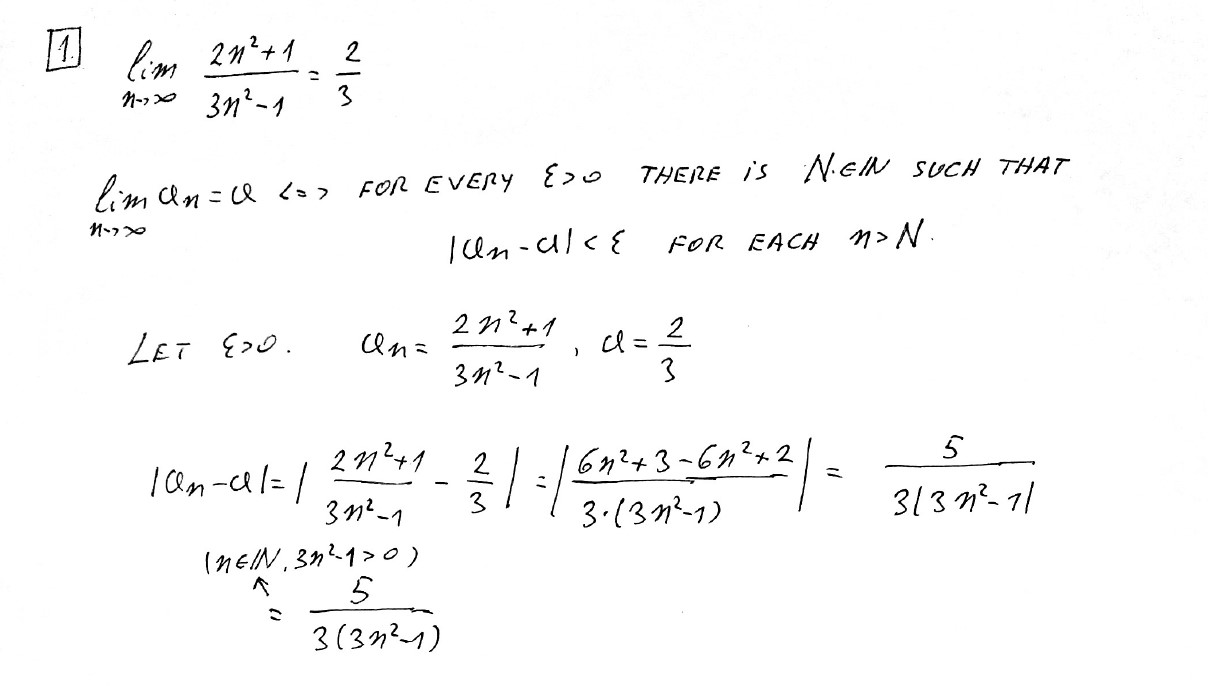 1. lim n->∞ (2n²+1)/(3n²-1) = 2/3
lim n->∞ an = a <=> FOR EVERY ε>0 THERE iS N∈ℕ SUCH THAT
|an-a|<ε FOR EACH n>N.
LET ε>0. an = (2n²+1)/(3n²-1), a = 2/3
|an-a| = |(2n²+1)/(3n²-1) - 2/3| = |(6n²+3-6n²+2)/(3·(3n²-1))| = 5/(3|3n²-1|)
(n∈ℕ, 3n²-1>0)
↑
= 5/(3(3n²-1))